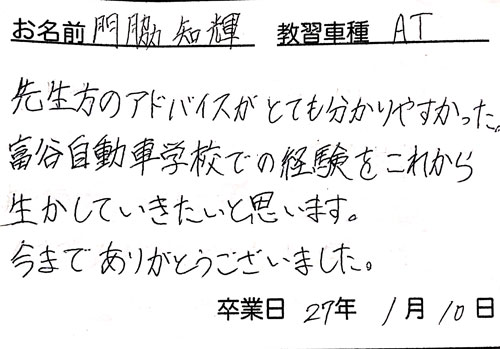 お名前 門脇 知輝 教習車種 AT
先生方のアドバイスがとても分かりやすかった。
富谷自動車学校での経験をこれから
生かしていきたいと思います。
今までありがとうございました。
卒業日 27年 1月 10日